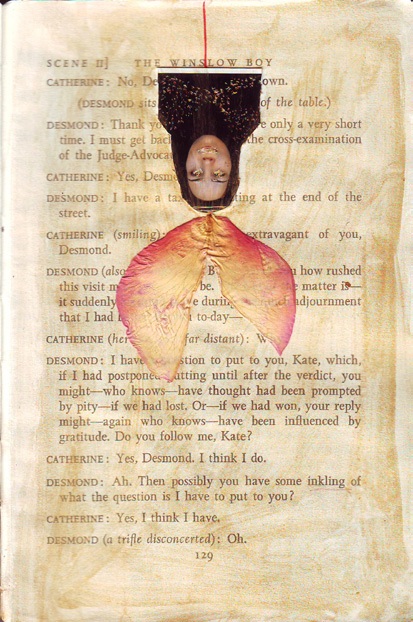 SCENE II] THE WINSLOW BOY
CATHERINE: No, De own.
(DESMOND sits of the table.)
DESMOND: Thank yo e only a very short
time. I must get bac the cross-examination
of the Judge-Advoca
CATHERINE: Yes, Desm
DESMOND: I have a ta ting at the end of the
street.
CATHERINE (smiling): extravagant of you,
Desmond.
DESMOND (also B how rushed
this visit m be. e matter is—
it suddenly e durin djournment
that I had to-day—
CATHERINE (her far distant): W
DESMOND: I have stion to put to you, Kate, which,
if I had postpone utting until after the verdict, you
might—who knows—have thought had been prompted
by pity—if we had lost. Or—if we had won, your reply
might—again who knows—have been influenced by
gratitude. Do you follow me, Kate?
CATHERINE: Yes, Desmond. I think I do.
DESMOND: Ah. Then possibly you have some inkling of
what the question is I have to put to you?
CATHERINE: Yes, I think I have.
DESMOND (a trifle disconcerted): Oh.
129